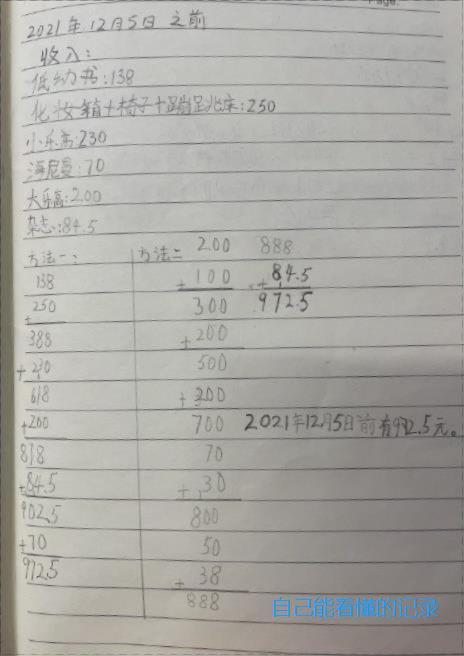 Page.
2021年12月5日 之前
收入：
低幼书：138
化妆箱+椅子+蹦蹦床：250
小乐高：230
海尼曼：70
大乐高：200
杂志：84.5
方法一：
138
+250
388
+230
618
+200
818
+84.5
902.5
+70
972.5
方法二
200
+100
300
+200
500
+200
700
70
+30
800
50
+38
888
888
+84.5
972.5
2021年12月5日前有972.5元。
自己能看懂的记录